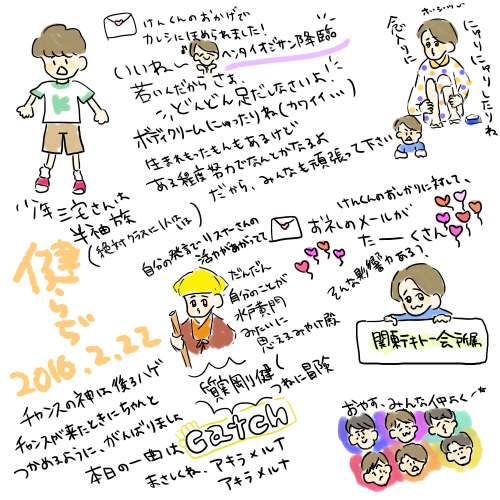 けんくんのおかげで
カレシにほめられました!
ヘンタイオジサン降臨
いいね〜
若いんだからさぁ、
どんどん足だしなさいよ!
ボディクリームにゅったりね(カワイイ…)
生まれもったもんもあるけど
ある程度努力でなんとかなるよ
だから、みんなも頑張って下さい
念入りに
にゅりにゅりしたりね
K
少年三宅さんは
半袖族
(絶対クラスに1人はいる)
健らぢ
2016.2.22
自分の発言でリスナーさんの
活力があがってて
けんくんのおしかりに対して、
お礼のメールが
たーーくさん
そんな影響力ある?
だんだん
自分のことが
水戸黄門
みたいに
思えるみやけ殿
関東テキトー会所属
チャンスの神は後ろハゲ
チャンスが来たときにちゃんと
つかめるように、がんばりました
本日の一曲は、
catch
まさしくね、アキラメルナ
アキラメルナ
つねに冒険
おやす、みんな仲よく